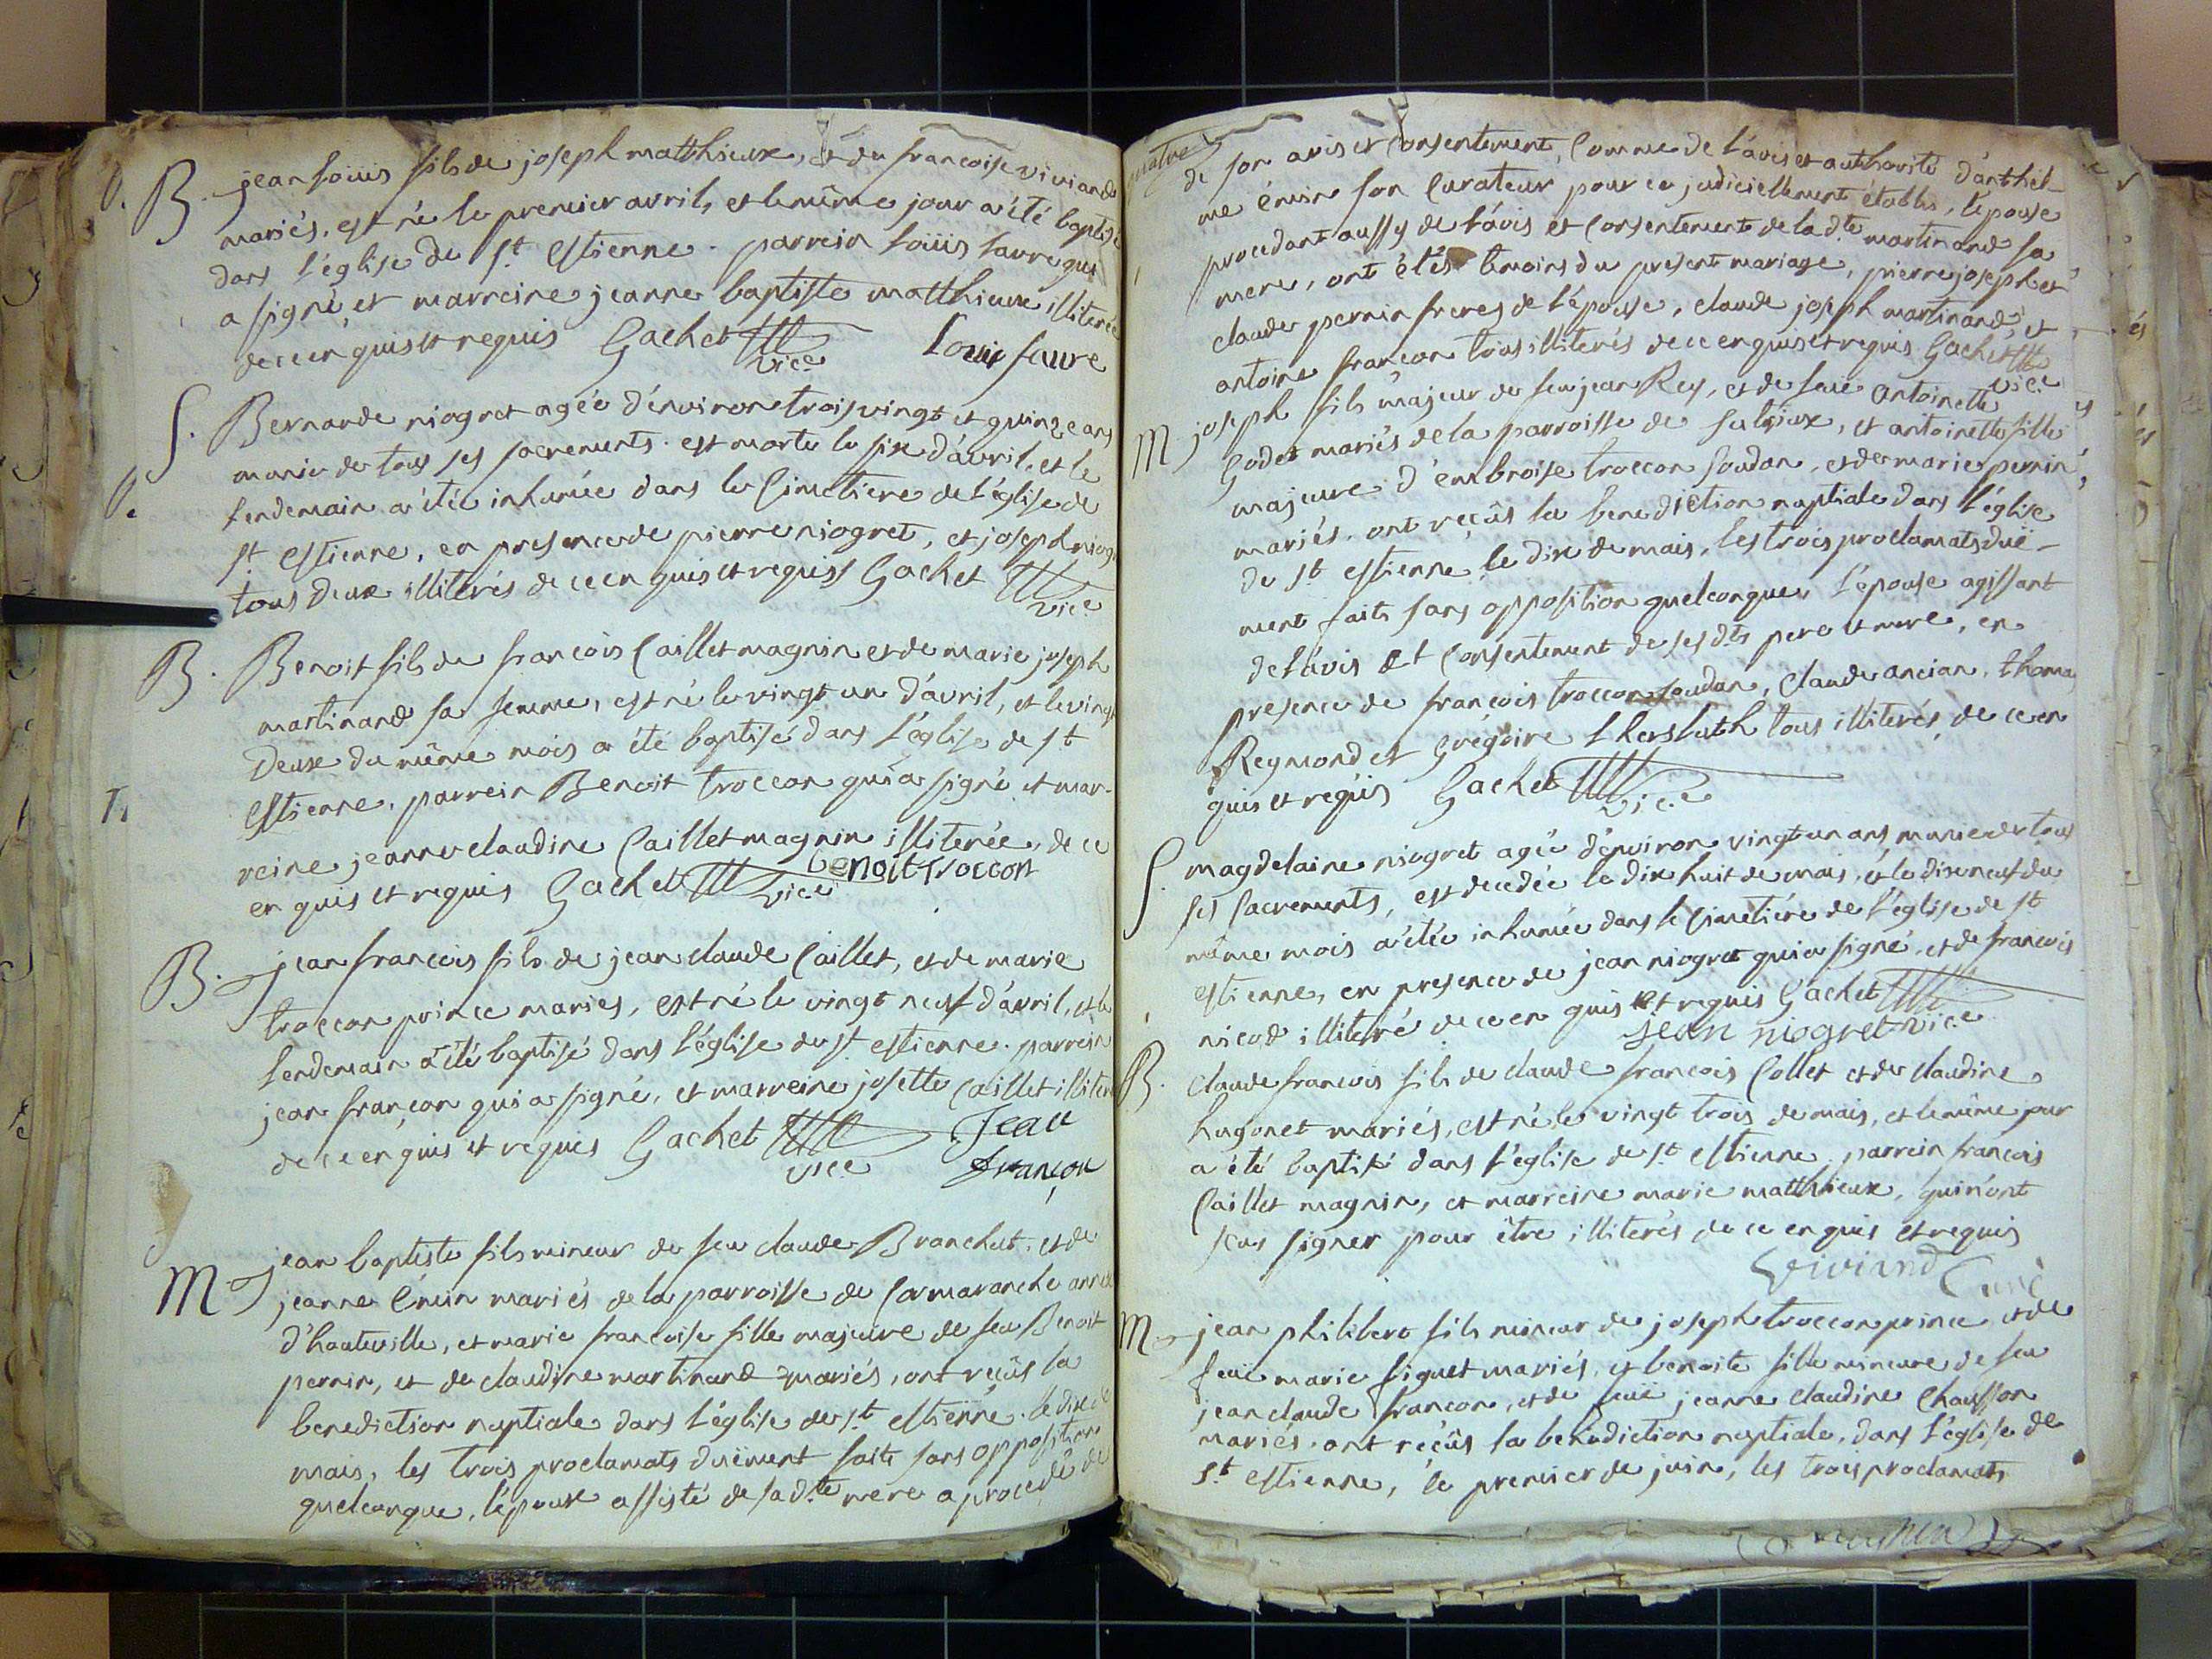 B. jean loüis fils de joseph matthieux, et de francoise viviand
mariés, est né le premier avril, et le même jour a été baptisé
dans l'église de St Estienne. parrein loüis favre qui
a signé, et marreine jeanne baptiste matthieux illiterée
de ce enquis et requis Gachet vice Louis favre
S. Bernarde niogret agée d'environ trois vingt et quinze ans
munie de tous ses sacrements. est morte le six d'avril, et le
lendemain a été inhumée dans le Cimetiere de l'église de
St estienne, en presence de pierre niogret, et joseph niogr
tous deux illiterés de ce enquis et requis Gachet vice
B. Benoit fils de francois Caillet magnin et de marie joseph
martinand sa femme, est né le vingt un d'avril, et le vingt
deux du même mois a été baptisé dans l'église de St
Estienne. parrein Benoit troccon qui a signé et mar-
reine jeanne claudine Caillet magnin illiterée, de ce
enquis et requis Gachet vice benoit troccon
B. jean francois fils de jean claude Caillet, et de marie
troccon prince mariés, est né le vingt neuf d'avril, et le
lendemain a été baptisé dans l'église de St estienne. parrein
jean françon qui a signé, et marreine josette Caillet illiter
de ce enquis et requis Gachet vice Jean
françon
M. jean baptiste fils mineur de feu claude Branchut, et de
jeanne Émin mariés de la parroisse de Cormaranche annexe
d'hauteville, et marie francoise fille majeure de feu Benoit
pernin, et de claudine martinand mariés, ont reçûs la
benediction nuptiale dans l'église de St estienne. le dix de
mais, les trois proclamats duëment faits sans opposition
quelconque, l'époux assisté de sa dte mere a procedé de
de son avis et Consentement, Comme de l'avis et authorité d'anthel-
me émin son Curateur pour ce judiciellement établis, l'épouse
procedant aussy de l'avis et Consentement de la dte martinand sa
mere, ont étés temoins du present mariage, pierre joseph et
claude pernin freres de l'épouse, claude joseph martinand, et
antoine françon tous illiterés de ce enquis et requis Gachet vice
M joseph fils majeur de feu jean Rey, et de feüe antoinette
Godet mariés de la parroisse de sulieux, et antoinette fille
majeure d'embroise troccon soudan, et de marie pernin
mariés, ont reçûs la benediction nuptiale dans l'église
de St estienne le dix de mais, les trois proclamats duë-
ment faits sans opposition quelconque, l'épouse agissant
de l'avis et Consentement de ses dts pere et mere, en
presence de francois troccon soudan, claude ancian, thoma
Reymond et Grégoire tous illiterés, de ce en
quis et requis Gachet vice
S. magdelaine niogret agée d'environ vingt un ans, munie de tous
ses sacrements, est decedée le dix huit de mais, et le dix neuf du
même mois a été inhumée dans le Cimetiére de l'église de St
estienne, en presence de jean niogret qui a signé, et de francois
nicod illiteré de ce enquis et requis Gachet
jean niogret vice
B. claude francois fils de claude francois Collet et de claudine
hugonet mariés, est né le vingt trois de mais, et le même jour
a été baptisé dans l'église de St estienne. parrein francois
Caillet magnin, et marreine marie matthieux, qui n'ont
sçus signer pour être illiterés de ce enquis et requis
Viviand Curé
M. jean philibert fils mineur de joseph troccon prince, et de
feüe marie siguet mariés, et benoite fille mineure de feu
jean claude françon, et de feüe jeanne claudine Chausson
mariés, ont reçûs la benediction nuptiale, dans l'église de
St estienne, le premier de juin, les trois proclamats